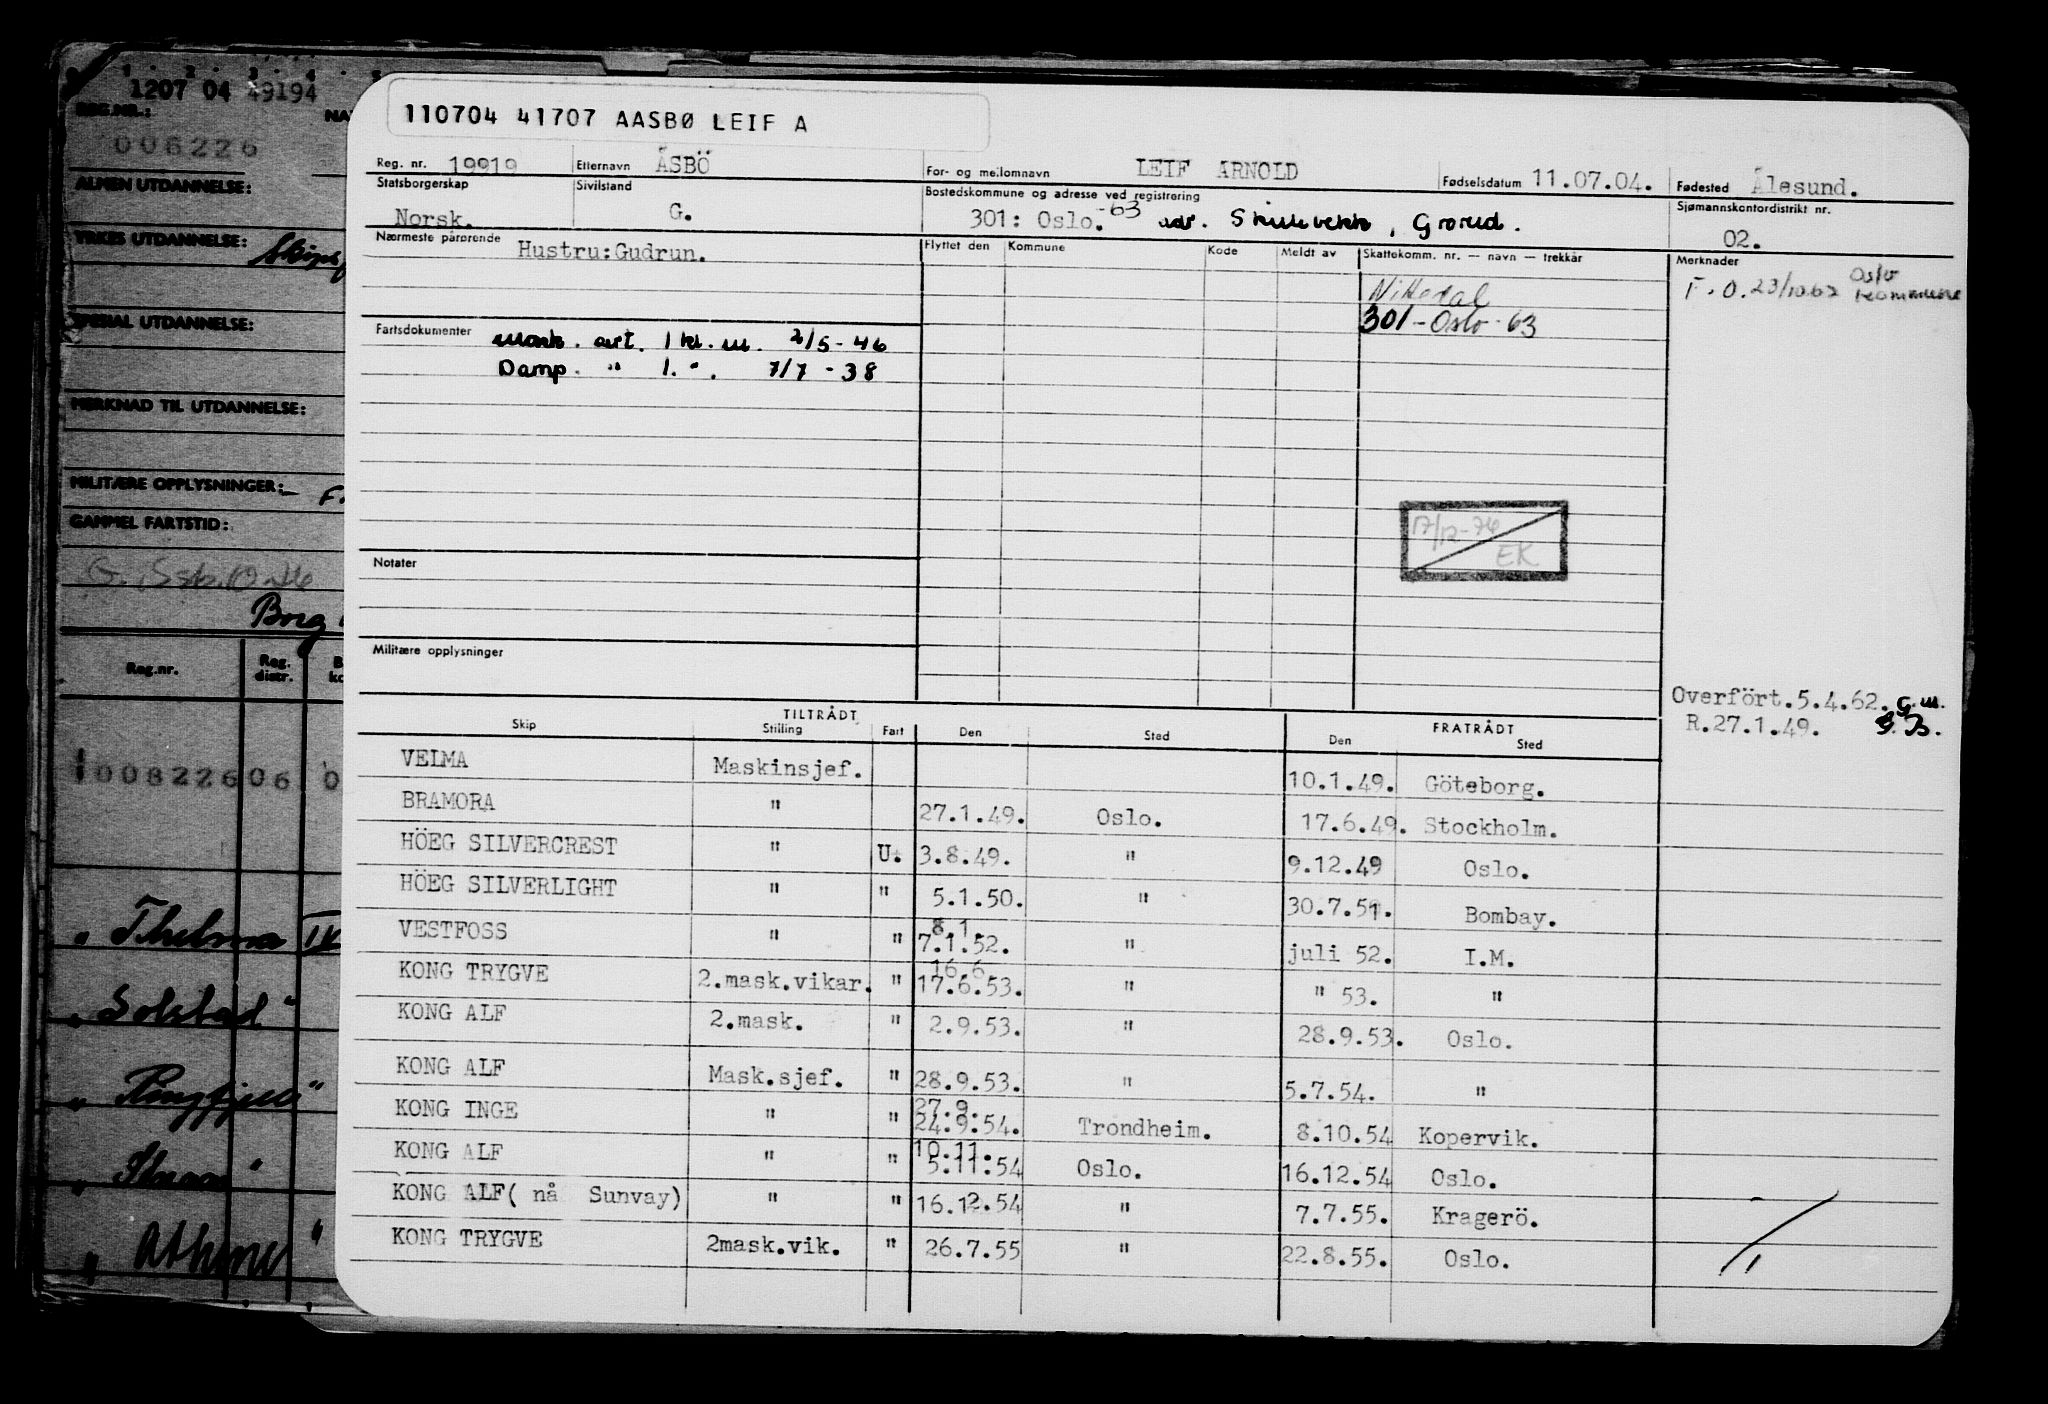 1207 04 49194
REG.NR.:
NA
006226
ALMEN UTDANNELSE:
YRKES UTDANNELSE:
SPESIAL UTDANNELSE:
MERKNAD TIL UTDANNELSE:
MILITÆRE OPPLYSNINGER:- F.
GAMMEL FARTSTID:
Borg
Reg.nr. Reg. distr.
00822606 0
" Thelma IV
" Solstad "
" "
" "
" "
110704 41707 AASBØ LEIF A
Reg. nr. 19919 Etternavn ÅSBÖ For- og mellomnavn LEIF ARNOLD Fødselsdatum 11.07.04. Fødested Ålesund.
Statsborgerskap Sivilstand Bostedskommune og adresse ved registrering Sjømannskontordistrikt nr.
Norsk. G. 301: Oslo.-63 adr. Grorud. 02.
Nærmeste pårørende Hustru:Gudrun. Flyttet den Kommune Kode Meldt av Skattekomm. nr. — navn — trekkår Merknader
Nittedal F.O. 23/10 62 Oslo kommune
301-Oslo-63
Fartsdokumenter mask. art. 1 kl. m. 2/5-46
Damp. " 1. ". 7/7-38
17/12-74
EK
Notater
Militære opplysninger
Overfört.5.4.62. G.M.
R.27.1.49. G.B.
TILTRÅDT FRATRÅDT
Skip Stilling Fart Den Sted Den Sted
VELMA Maskinsjef. 10.1.49. Göteborg.
BRAMORA " 27.1.49. Oslo. 17.6.49. Stockholm.
HÖEG SILVERCREST " U. 3.8.49. " 9.12.49 Oslo.
HÖEG SILVERLIGHT " " 5.1.50. " 30.7.51. Bombay.
VESTFOSS " " 8.1. 7.1.52. " juli 52. I.M.
KONG TRYGVE 2.mask.vikar. " 16.6. 17.6.53. " " 53. "
KONG ALF 2.mask. " 2.9.53. " 28.9.53. Oslo.
KONG ALF Mask.sjef. " 28.9.53. " 5.7.54. "
KONG INGE " " 27.9. 24.9.54. Trondheim. 8.10.54 Kopervik.
KONG ALF " " 10.11. 5.11.54 Oslo. 16.12.54 Oslo.
KONG ALF( nå Sunvay) " " 16.12.54 " 7.7.55. Kragerö.
KONG TRYGVE 2mask.vik. " 26.7.55 " 22.8.55. Oslo.